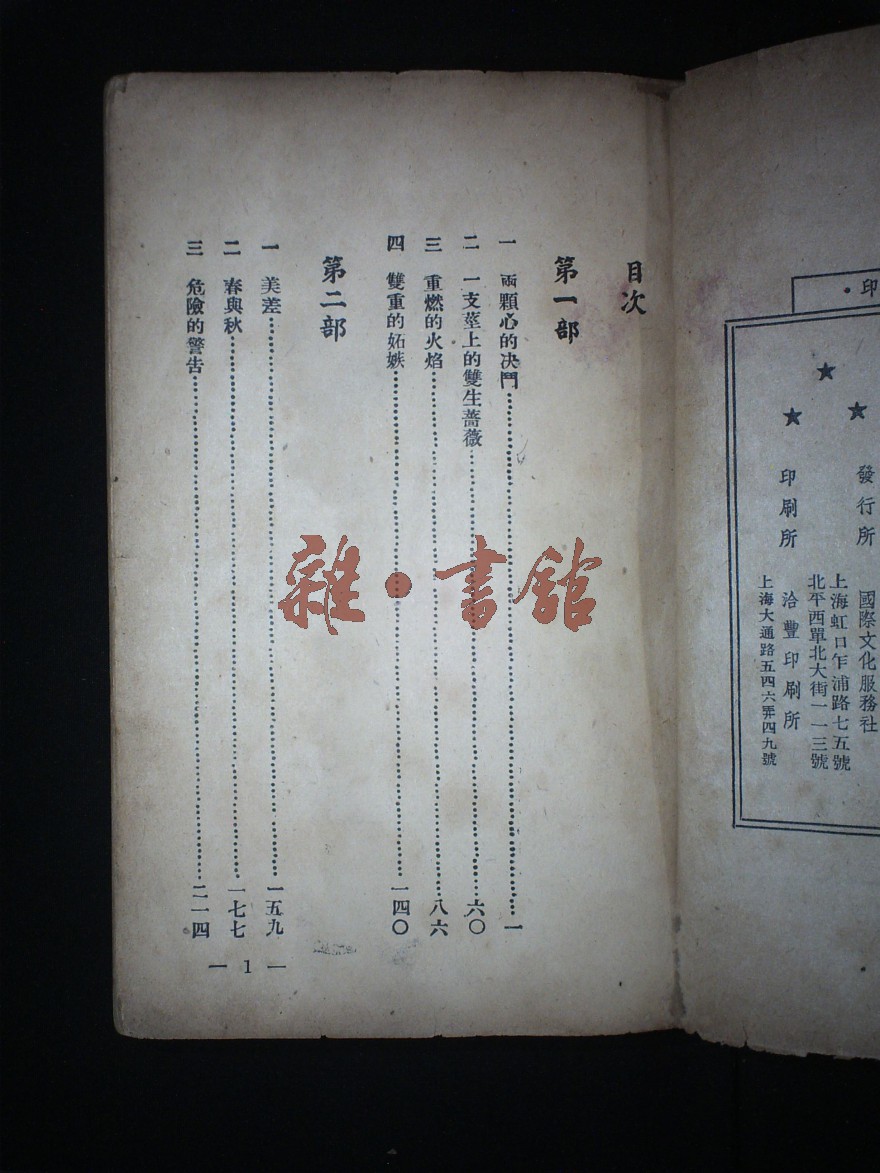 印・
發行所 國際文化服務社
上海虹口乍浦路七五號
北平西單北大街一一三號
印刷所 洽豐印刷所
上海大通路五四六弄四九號
目次
第一部
一 兩顆心的決鬥 一
二 一支莖上的雙生薔薇 六〇
三 重燃的火焰 八六
四 雙重的妬嫉 一四〇
第二部
一 美差 一五九
二 春與秋 一七七
三 危險的警告 二一四
— 1 —
雜・書館